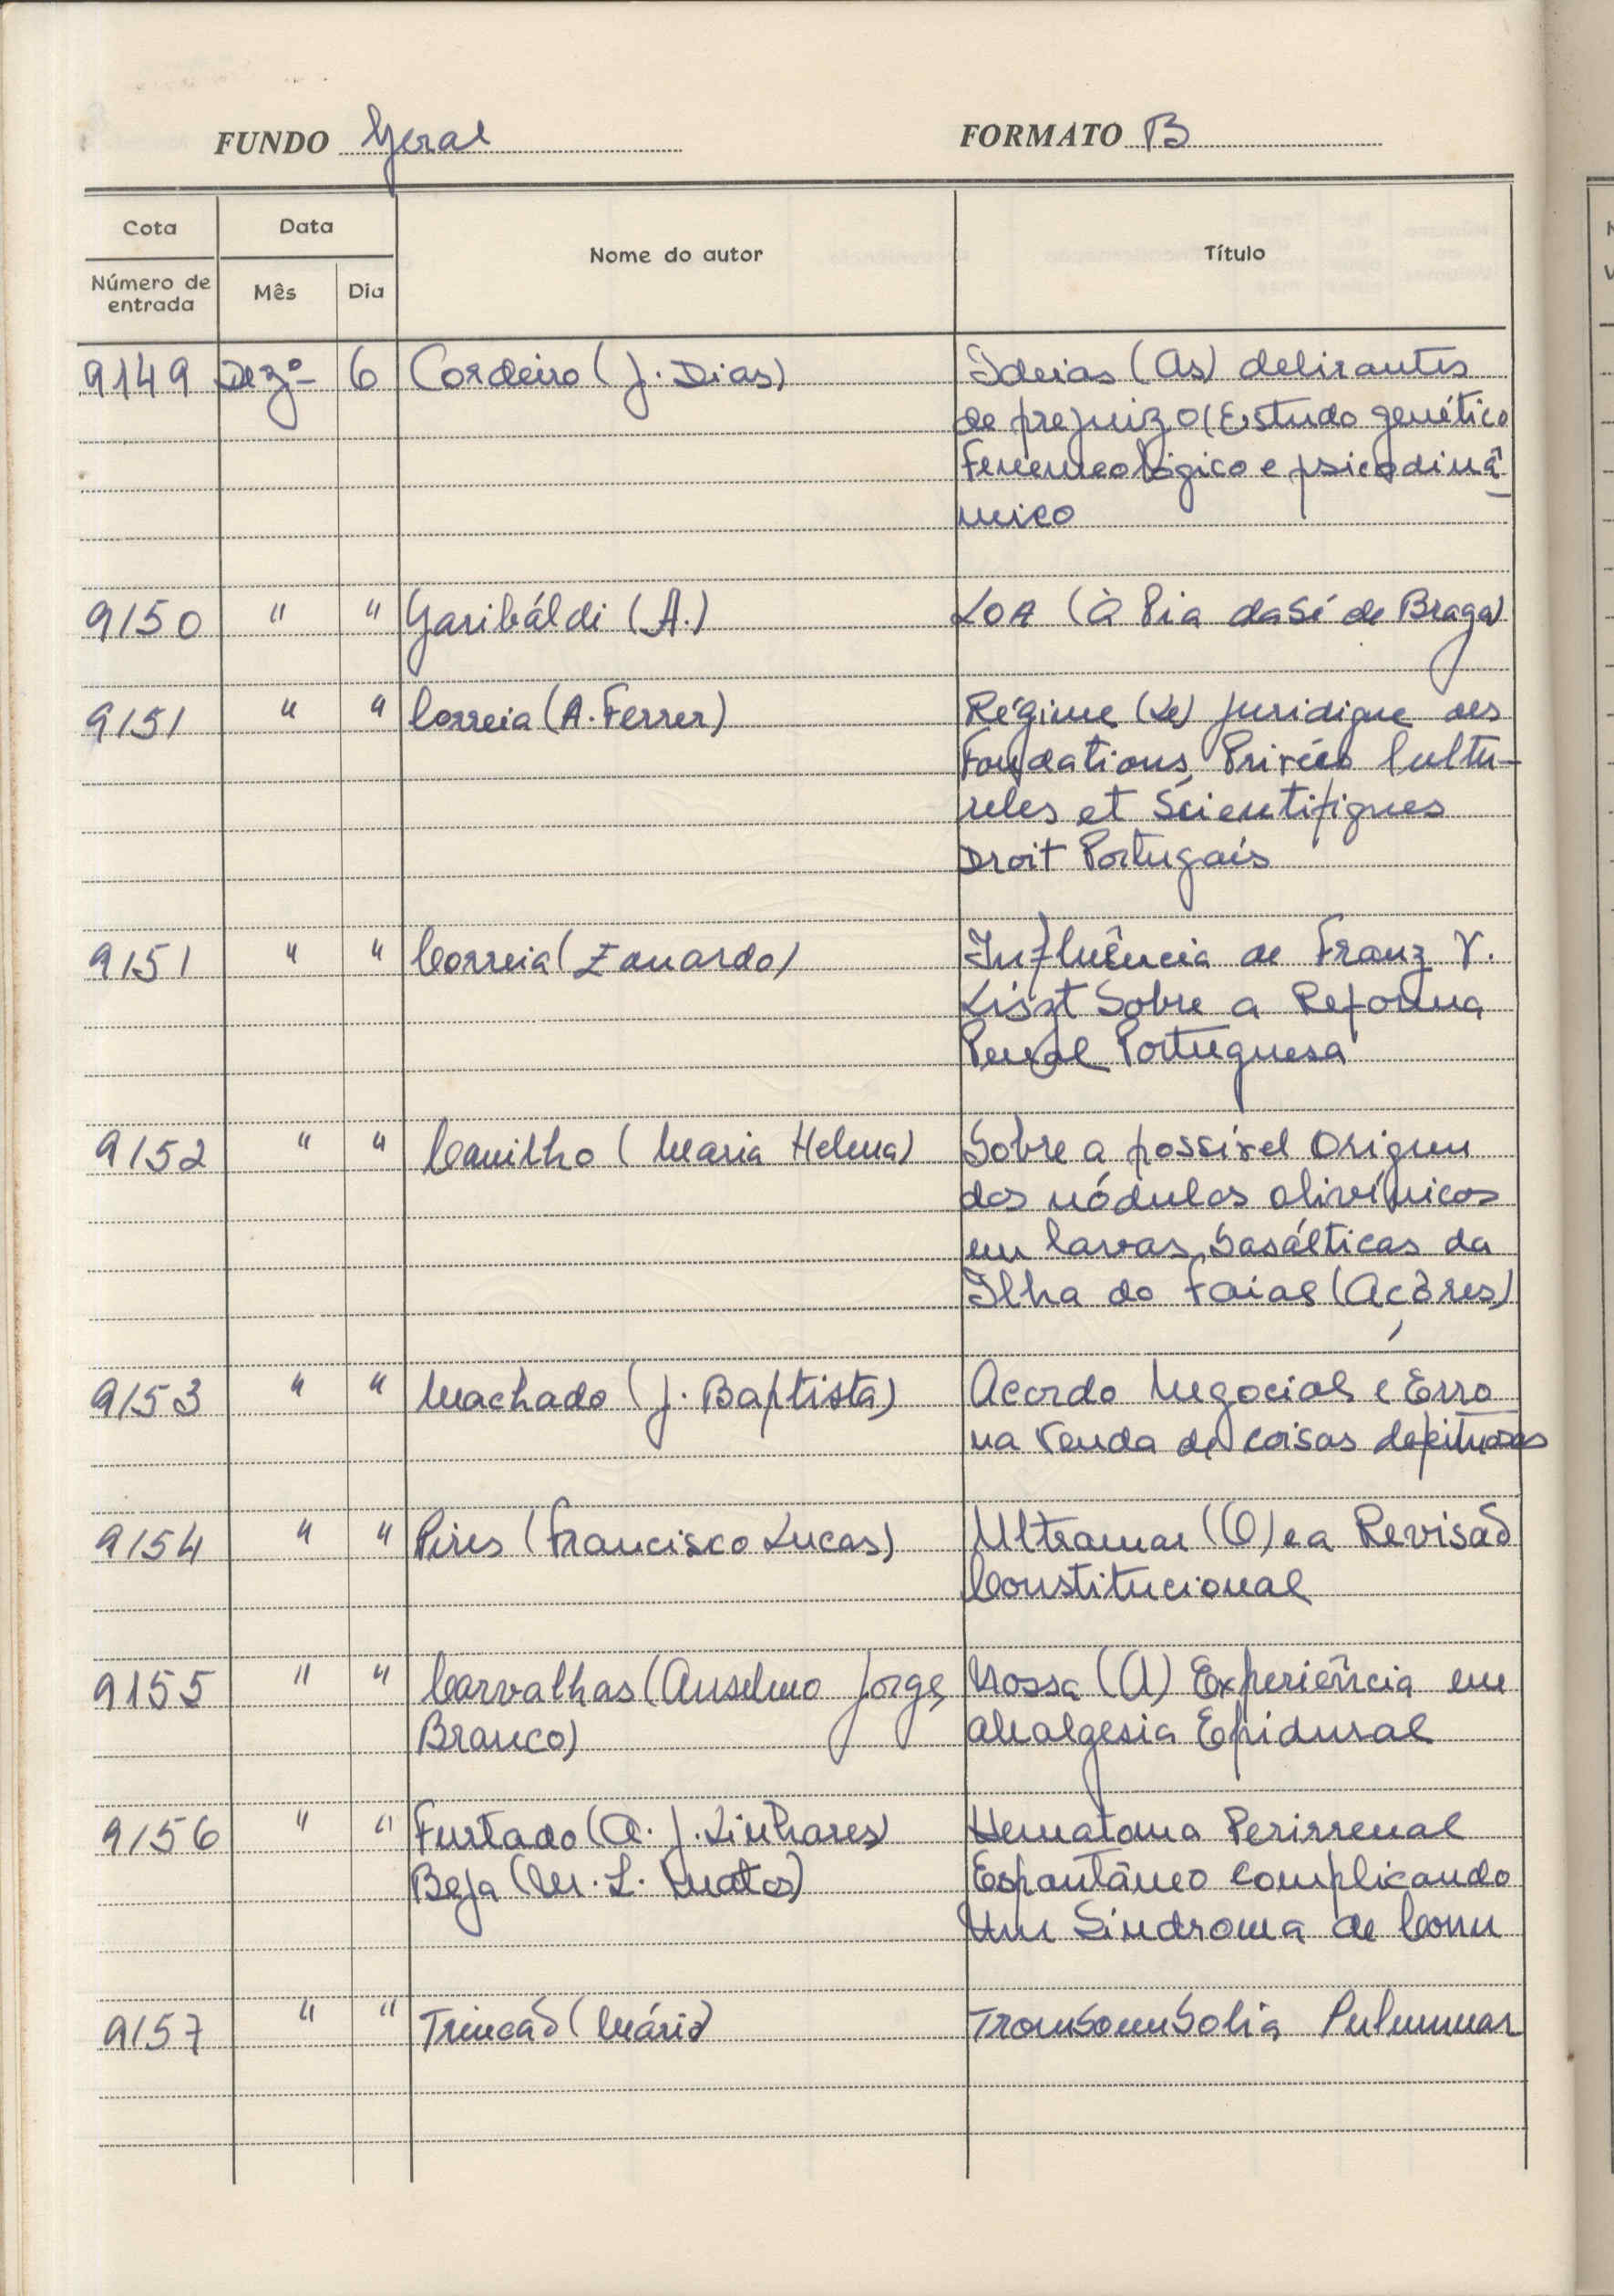 FUNDO Geral FORMATO B
Cota Data Nome do autor Título
Número de entrada Mês Dia
9149 Dezº 6 Cordeiro (J. Dias) Ideias (As) delirantes
de prejuizo (Estudo genético
Fenemeológico e psicodinâ-
mico
9150 " " Garibáldi (A.) LOA (À Pia da Sé de Braga)
9151 " " Correia (A. Ferrer) Régime (Le) Juridique des
Foundations Privées Cultu-
reles et Scientifiques
Droit Portugais
9151 " " Correia (Eduardo) Influência de Franz V.
Liszt Sobre a Reforma
Penal Portuguesa
9152 " " Canilho (Maria Helena) Sobre a possivel Origem
dos nódulos olivínicos
em lavas basálticas da
Ilha do Faial (Açôres)
9153 " " Machado (J. Baptista) Acordo Negocial e Erro
na Venda de coisas defeituosas
9154 " " Pires (Francisco Lucas) Ultramar (O) e a Revisão
Constitucional
9155 " " Carvalhas (Anselmo Jorge Nossa (A) Experiência em
Branco) Analgesia Epidural
9156 " " Furtado (A. J. Linhares) Hematoma Perirrenal
Beja (M. L. Matos) Espontâneo complicando
Um Sindroma de Conn
9157 " " Trincão (Mário) Tromboembolia Pulmunar